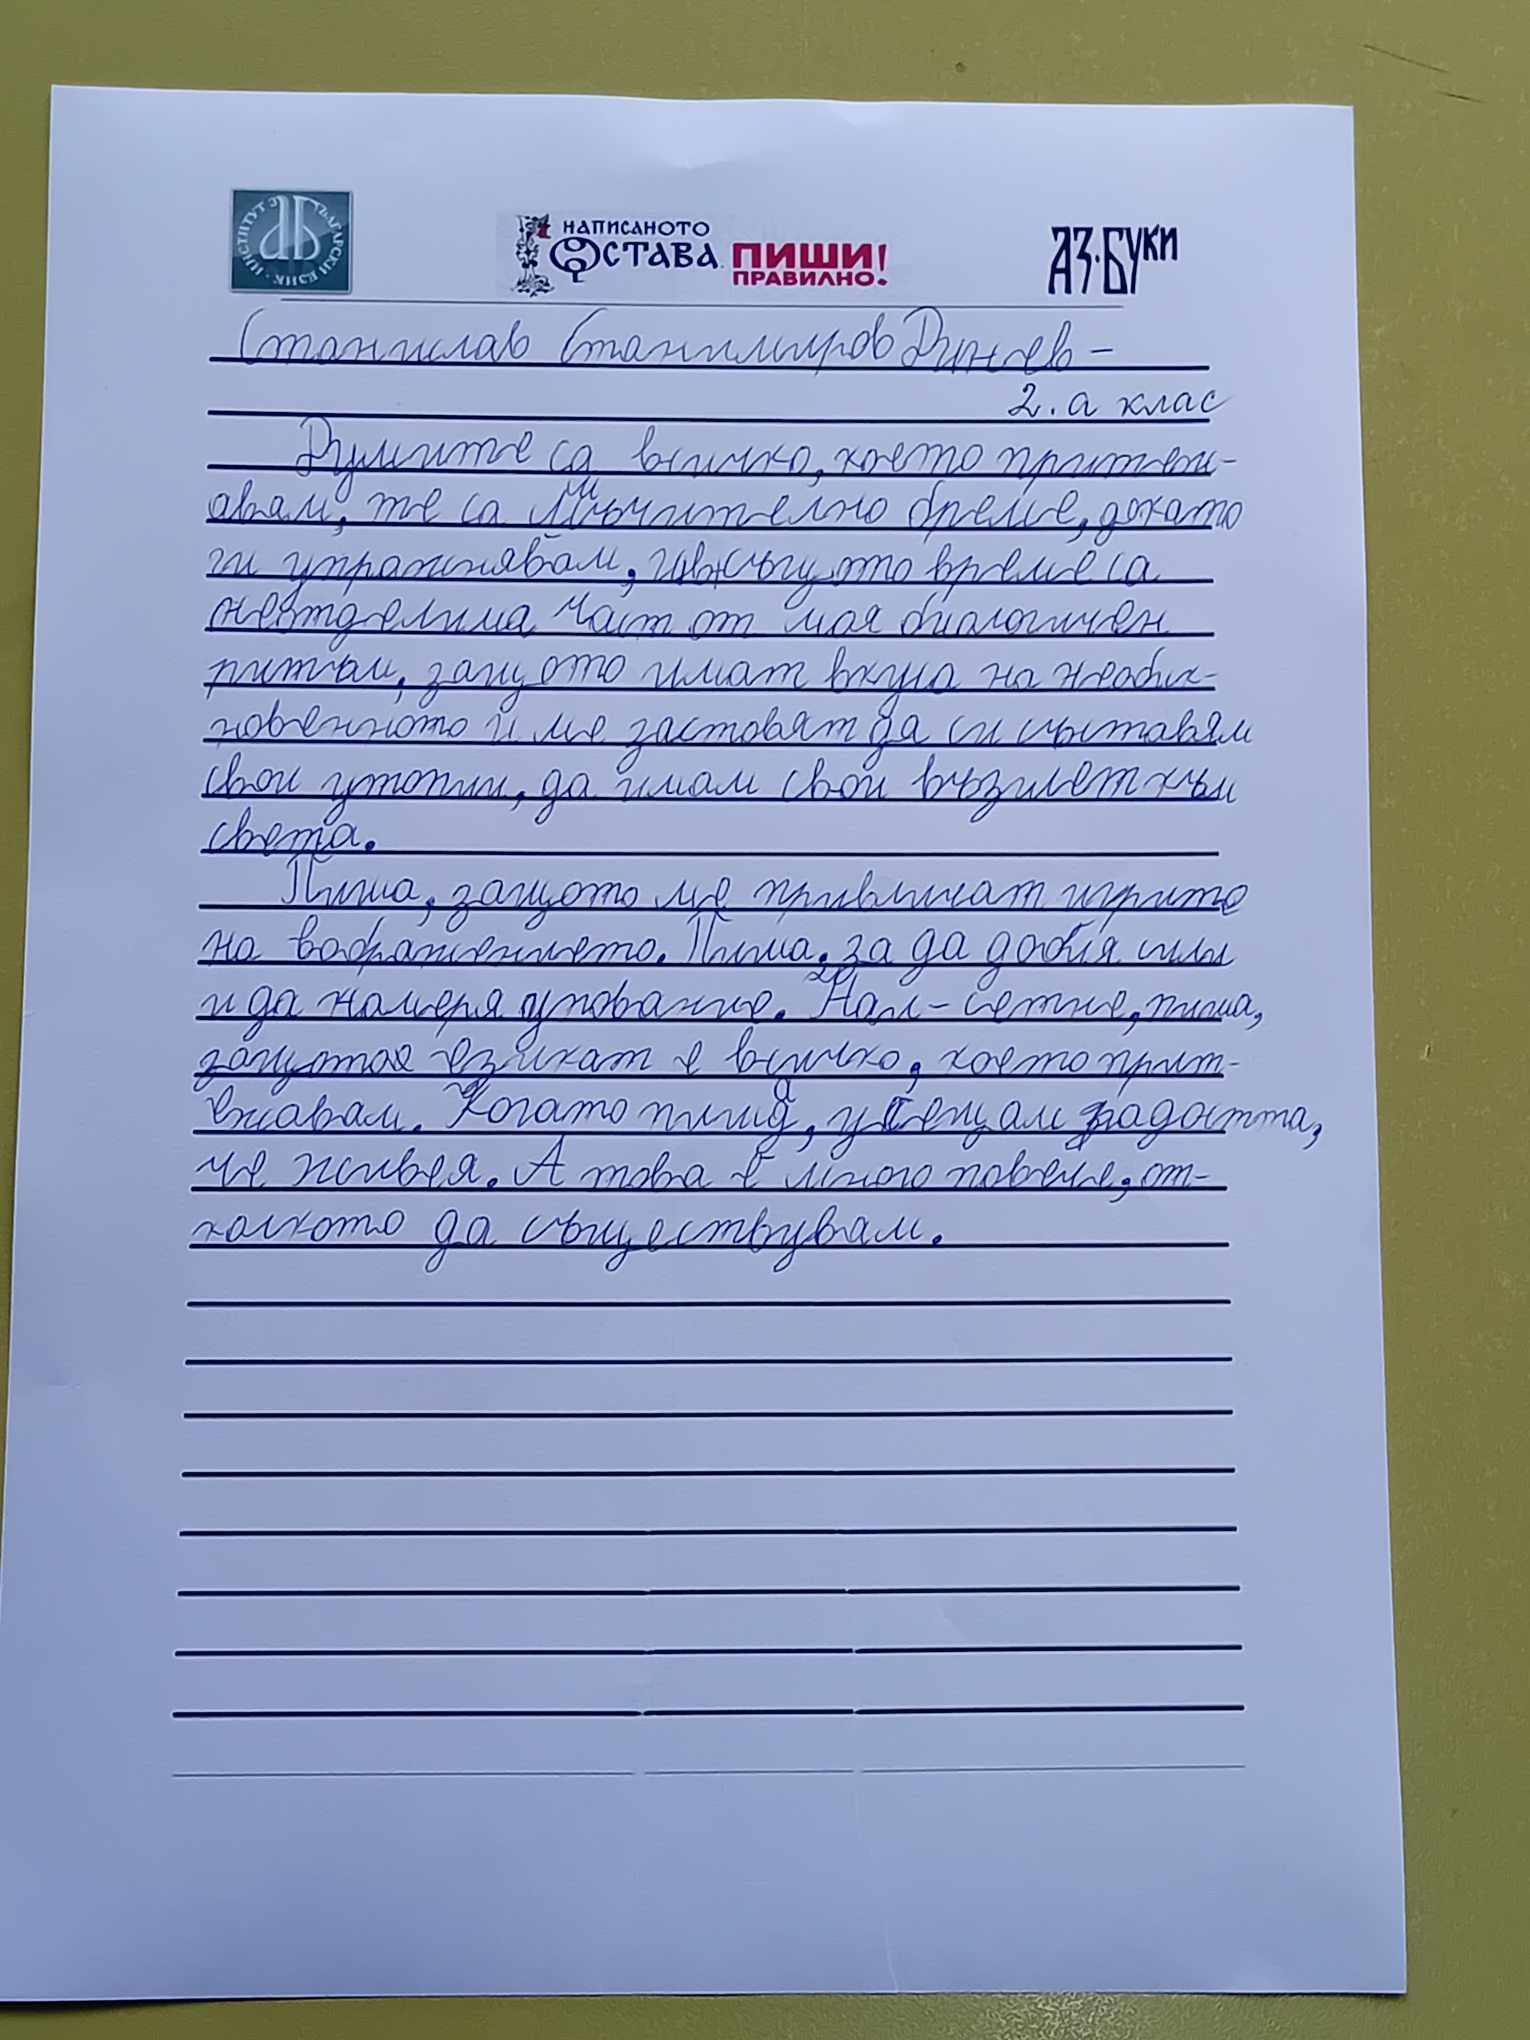 ИНСТИТУТ ЗА БЪЛГАРСКИ ЕЗИК
НАПИСАНОТО
ОСТАВА. ПИШИ
ПРАВИЛНО!
АЗ·БУКИ
Станислав Станимиров Динев –
2. а клас
Думите са всичко, което притеж-
авам, те са мъчително бреме, докато
ги упражнявам, и в същото време са
неотделима част от моя биологичен
ритъм, защото имат вкуса на необик-
новенното и ме заставят да си съставям
свои утопии, да имам свои възглет към
света.
Пиша, защото ме привличат игрите
на вображението. Пиша, за да добия сили
и да намеря упование. Най-сетне, пиша,
защотое езикат е всичко, което прит-
ежавам. Когато пиша, усещам радостта,
че живея. А това е много повече, от-
колкото да съществувам.